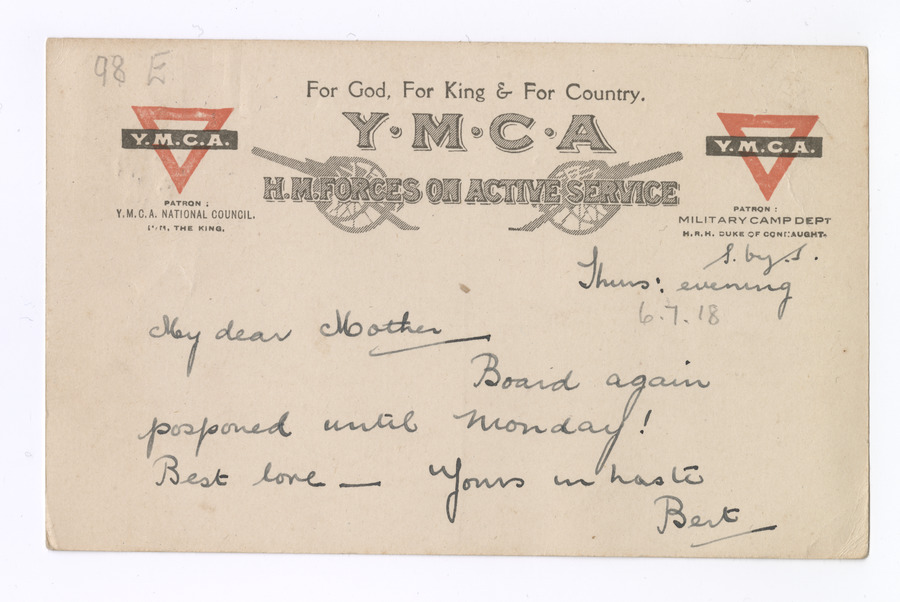 98 E
For God, For King & For Country.
Y·M·C·A
H.M. FORCES ON ACTIVE SERVICE
Y.M.C.A.
PATRON:
Y.M.C.A. NATIONAL COUNCIL.
H.M. THE KING.
Y.M.C.A.
PATRON:
MILITARY CAMP DEPT
H.R.H. DUKE OF CONNAUGHT.
S. by S.
Thurs: evening
6.7.18
My dear Mother
Board again
posponed until Monday!
Best love — Yours in haste
Bert